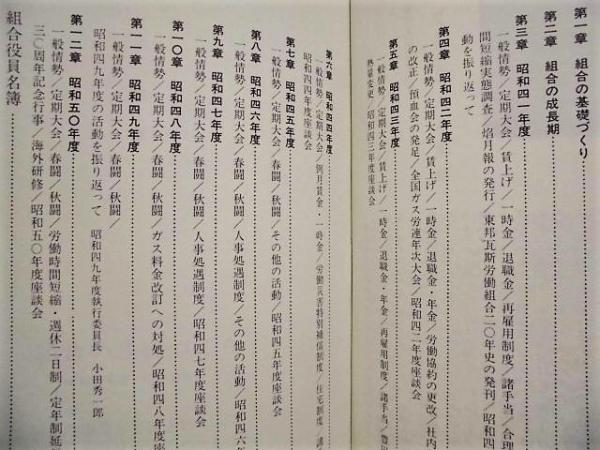 第一章　組合の基礎づくり
第二章　組合の成長期
第三章　昭和四一年度
一般情勢／定期大会／賃上げ／一時金／退職金／再雇用制度／諸手当／合理
間短縮実態調査／焰月報の発行／東邦瓦斯労働組合二〇年史の発刊／昭和四
動を振り返って
第四章　昭和四二年度
一般情勢／定期大会／賃上げ／一時金／退職金・年金／労働協約の更改／社内
の改正／預血会の発足／全国ガス労連年次大会／昭和四二年度座談会
第五章　昭和四三年度
一般情勢／定期大会／賃上げ／一時金／退職金・年金／再雇用制度／諸手当／豊
熱量変更／昭和四三年度座談会
第六章　昭和四四年度
一般情勢／定期大会／例月賃金・一時金／労働災害特別補償制度／住宅制度／諸
昭和四四年度座談会
第七章　昭和四五年度
一般情勢／定期大会／春闘／秋闘／その他の活動／昭和四五年度座談会
第八章　昭和四六年度
一般情勢／定期大会／春闘／秋闘／人事処遇制度／その他の活動／昭和四六年
第九章　昭和四七年度
一般情勢／定期大会／春闘／秋闘／人事処遇制度／昭和四七年度座談会
第一〇章　昭和四八年度
一般情勢／定期大会／春闘／秋闘／ガス料金改訂への対処／昭和四八年度座
第一一章　昭和四九年度
一般情勢／定期大会／春闘／秋闘／
昭和四九年度の活動を振り返って　昭和四九年度執行委員長　小田秀一郎
第一二章　昭和五〇年度
一般情勢／定期大会／春闘／秋闘／労働時間短縮・週休二日制／定年制延
三〇周年記念行事／海外研修／昭和五〇年度座談会
組合役員名簿